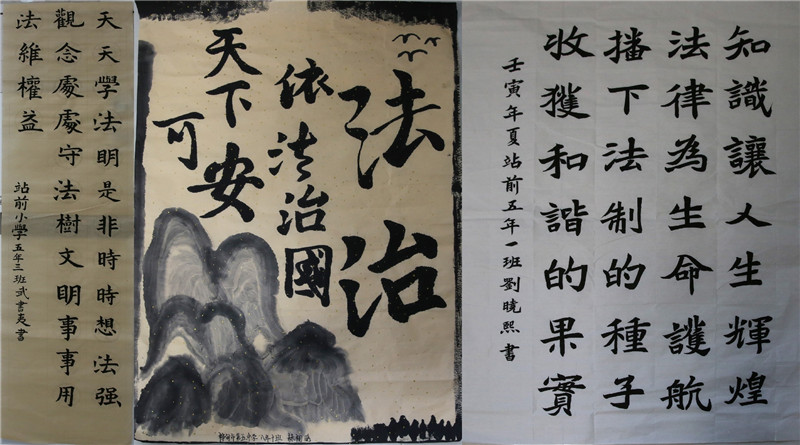 天天學法明是非時時想法强
觀念處處守法樹文明事事用
法維權益
站前小學五年三班武書夷書
法治
依法治國
天下安
可
知識讓人生輝煌
法律為生命護航
播下法制的種子
收獲和諧的果實
壬寅年夏站前五年一班劉曉熙書